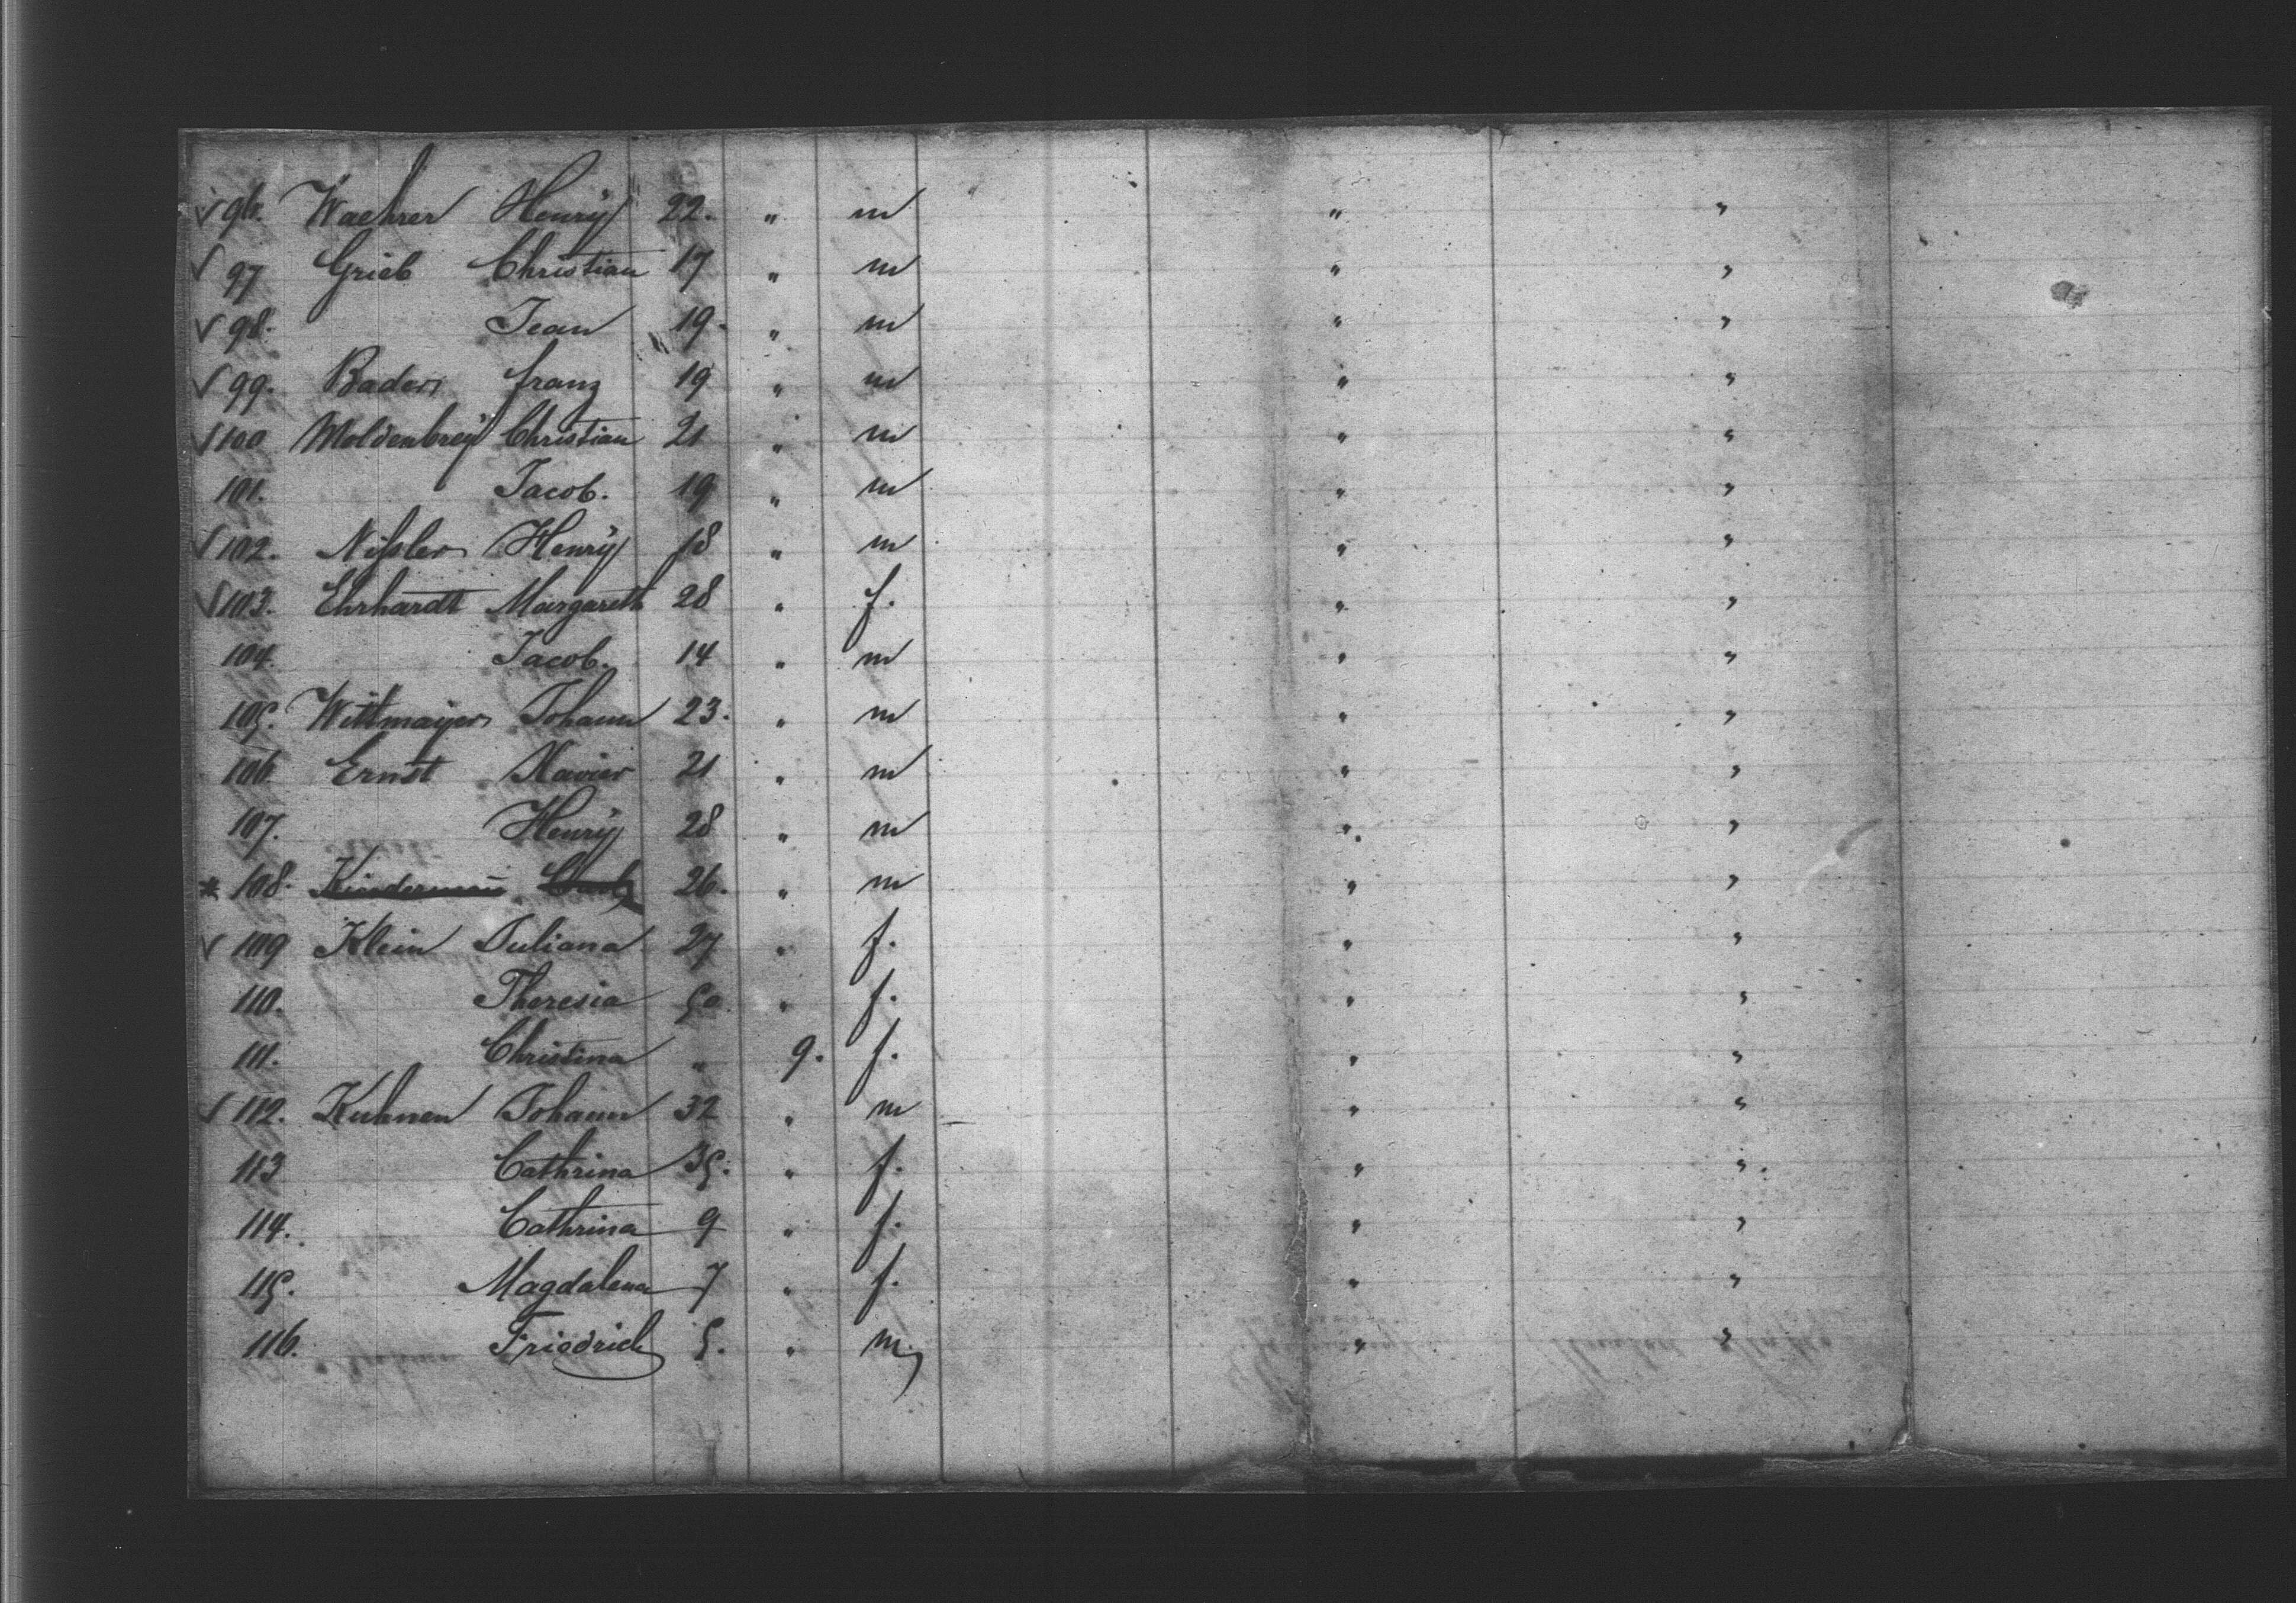 ✓ 96. Waehrer Henrÿ 22. " m " "
✓ 97 Grieb Christian 17 " m " "
✓ 98. Jean 19. " m " "
✓ 99. Bader franz 19 " m " "
✓ 100 Moldenbreÿ Christian 21 " m " "
101. Jacob. 19 " m " "
✓ 102. Nißler Henrÿ 18 " m " "
✓ 103. Ehrhardt Margareth 28 " f. " "
104. Jacob. 14 " m " "
105. Wittmaÿer Johann 23. " m " "
106. Ernst Xavier 21 " m " "
107. Henrÿ 28 " m " "
* 108. Kindermañ 26. " m " "
✓ 109 Klein Juliana 27 " f. " "
110. Theresia 50 " f. " "
111. Christina " 9. f. " "
✓ 112. Kuhnen Johann 32 " m " "
113 Cathrina 35. " f. " "
114. Cathrina 9 " f. " "
115. Magdalena 7 " f. " "
116. Friedrich 5. " m. " "